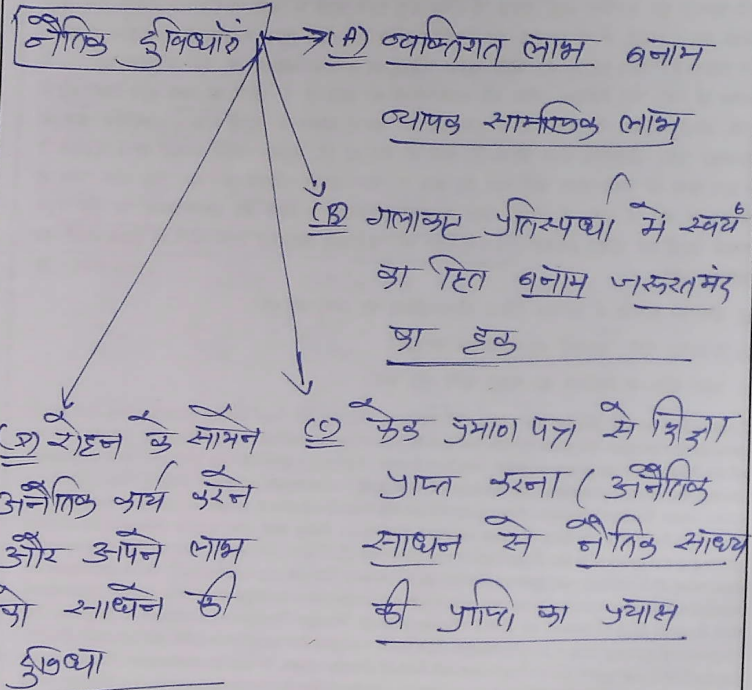 नैतिक दुविधाएँ
(A) व्यक्तिगत लाभ बनाम
व्यापक सामाजिक लाभ
(B) गलाकाट प्रतिस्पर्धा में स्वयं
का हित बनाम जरूरतमंद
का हक
(C) फेक प्रमाण पत्र से शिक्षा
प्राप्त करना (अनैतिक
साधन से नैतिक साध्य
की प्राप्ति का प्रयास
(D) रोहन के सामने
अनैतिक कार्य करने
और अपने लाभ
को साधने की
दुविधा